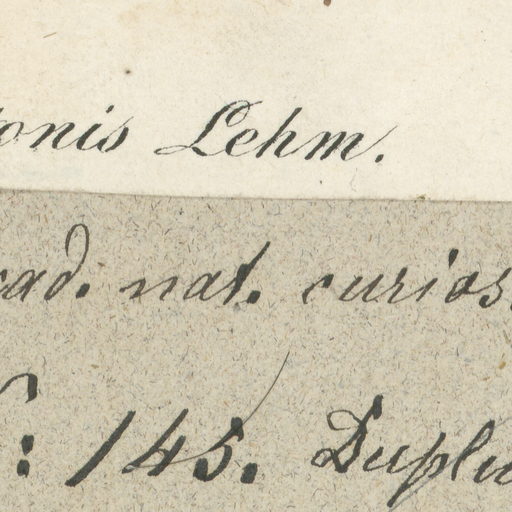 onis Lehm.
cad. nat. curios.
: 145. Duplu